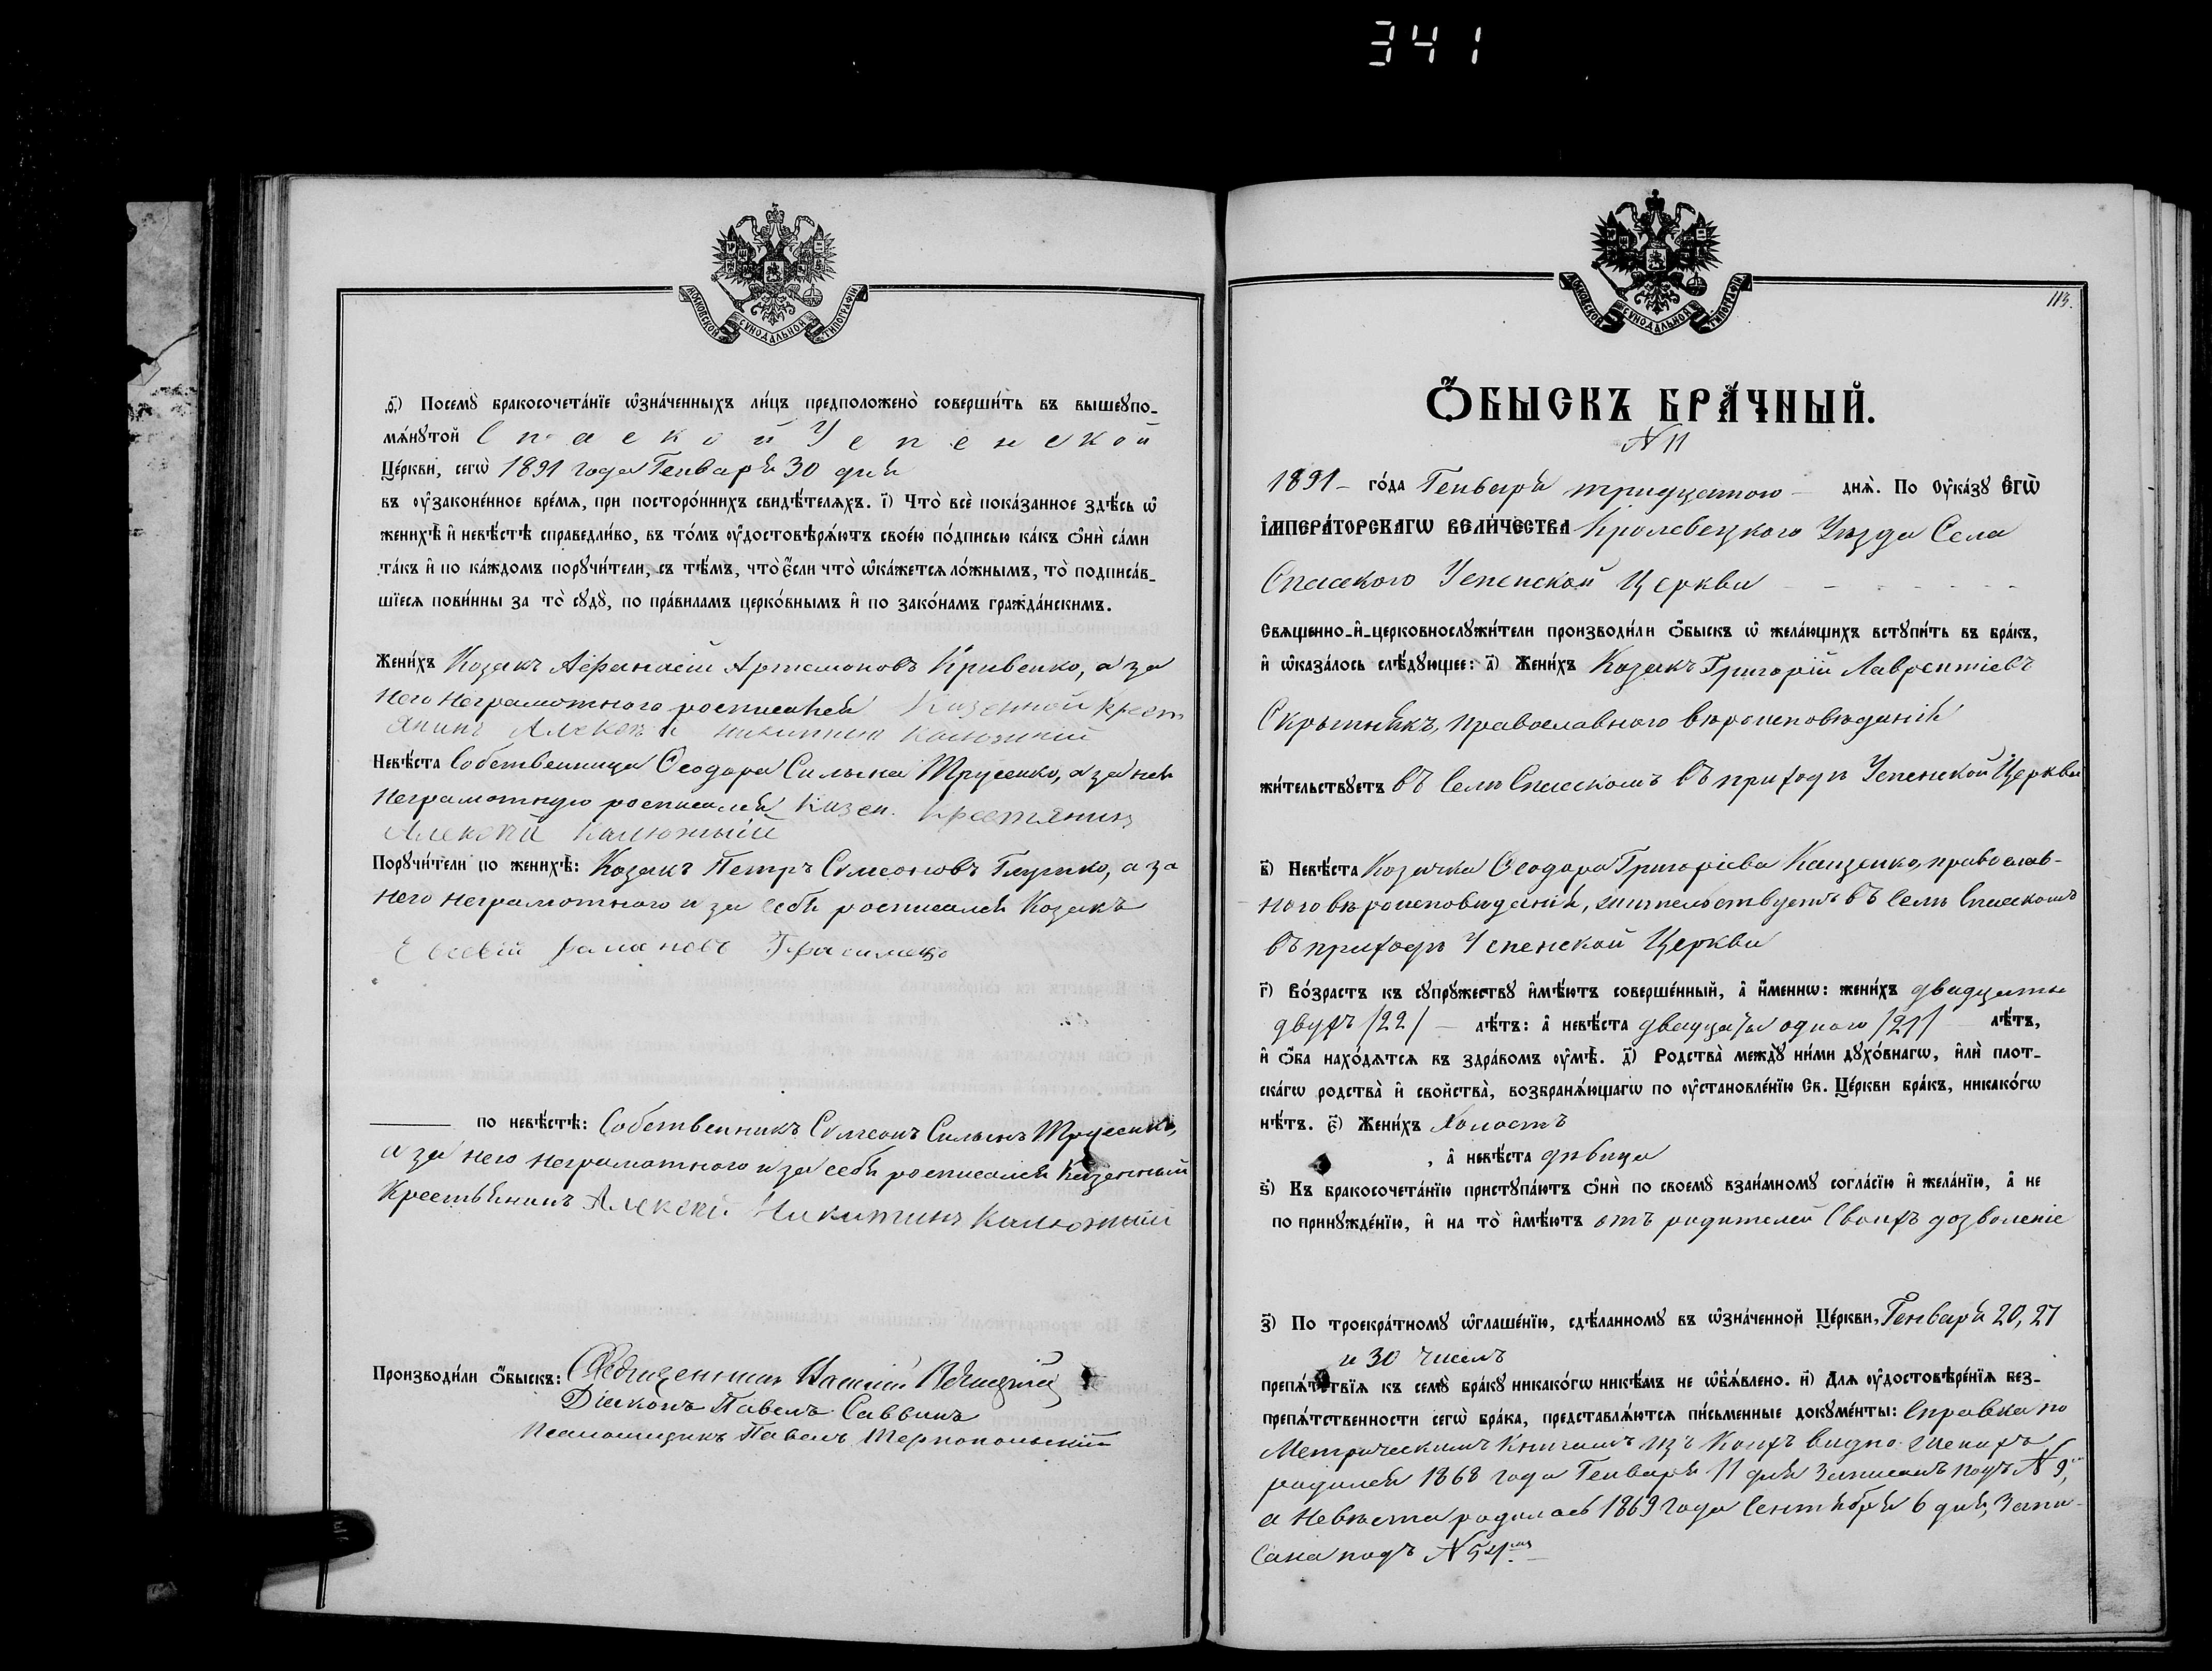 341
МОСКОВСКОЙ СѴНОДАЛЬНОЙ ТИПОГРАФІИ
Посемꙋ бракосочета́нїе ѡ҆зна́ченныхъ ли́цъ предположено̀ соверши́ть въ вышеꙋпо-
мѧ́нꙋтой Спаской Успенской
Це́ркви, сегѡ̀ 1891 года Генваря 30 дня
въ ᲂу҆законе́нное вре́мѧ, при посторо́ннихъ свидѣ́телѧхъ. і҃) Что̀ всѐ пока́занное здѣ́сь ѡ҆
женихѣ̀ и҆ невѣ́стѣ справедли́во, въ то́мъ ᲂу҆достовѣрѧ́ютъ свое́ю по́дписью ка́къ ѻ҆нѝ са́ми
та́къ и҆ по ка́ждомъ порꙋчи́тели, съ тѣ́мъ, что̀ є҆́сли что̀ ѡ҆ка́жетсѧ ло́жнымъ, то̀ подписа́в-
шїесѧ пови́нны за то̀ сꙋдꙋ̀, по пра́виламъ церко́внымъ и҆ по зако́намъ гражда́нскимъ.
Жени́хъ Козакъ Афанасій Артемоновъ Кривенко, а за
него неграмотного росписался Казенной Крест
янинъ Алексѣй Никитинъ Калюжній
Невѣ́ста Собственница Ѳеодора Сильина Трусенко, а за нея
неграмотную росписался Казен. Крестянинъ
Алексѣй Калюжный
Порꙋчи́тели по женихѣ̀: Козакъ Петръ Симеоновъ Глушко, а за
него неграмотного и за себя росписался Козакъ
Евсевій Романовъ
по невѣ́стѣ: Собственникъ Симеонъ Сильинъ Трусенко,
а за него неграмотного и за себя росписался Казенный
Крестьянинъ Алексѣй Никитинъ Калюжный
Производи́ли ѻ҆́быскъ: Священникъ Василій
Діаконъ Павелъ Саввинъ
Псаломщикъ Павелъ Тернопольскій
МОСКОВСКОЙ СѴНОДАЛЬНОЙ ТИПОГРАФІИ
113.
Ѻ҆́БЫСКЪ БРА́ЧНЫЙ.
N 11
1891 го́да Генваря тридцатого днѧ̀. По Оу҆ка́зꙋ Є҆гѡ̀
І҆МПЕРА́ТОРСКАГѠ ВЕЛИ́ЧЕСТВА Кролевецкого Уѣзда Села
Спасского Успенской Церкви
Свѧщенно-и҆-церковнослꙋжи́тели производи́ли ѻ҆́быскъ ѡ҆ жела́ющихъ встꙋпи́ть въ бра́къ,
и҆ ѡ҆каза́лось слѣ́дꙋющее: а҃) Жени́хъ Козакъ Григорій Лаврентіевъ
Скрытникъ, православного вѣроисповѣданія
жи́тельствꙋетъ въ Селѣ Спасскомъ въ приходѣ Успенской Церкви
в҃) Невѣ́ста Козачка Ѳеодора Григоріева Канценко, православ-
ного вѣроисповѣданія, жительствуетъ въ Селѣ Спасскомъ
въ приходѣ Успенской Церкви
г҃) Во́зрастъ къ сꙋпрꙋжествꙋ и҆мѣ́ютъ соверше́нный, а҆ и҆́меннѡ: жени́хъ двадцати
двухъ /22/ — лѣ́тъ: а҆ невѣ́ста двадцати одного /21/ — лѣ́тъ,
и҆ ѻ҆́ба нахо́дѧтсѧ въ здра́вомъ ᲂу҆мѣ̀. д҃) Родства̀ междꙋ̀ ни́ми дꙋхо́внагѡ, и҆лѝ плот-
ска́гѡ родства̀ и҆ свойства̀, возбранѧ́ющагѡ по ᲂу҆становле́нїю Св. Це́ркви бра́къ, никако́гѡ
нѣ́тъ. є҃) Жени́хъ Холостъ
, а҆ невѣ́ста дѣвица
ѕ҃) Къ бракосочета́нїю пристꙋпа́ютъ ѻ҆нѝ по своемꙋ̀ взаи́мномꙋ согла́сїю и҆ жела́нїю, а҆ не
по принꙋжде́нїю, и҆ на то̀ и҆мѣ́ютъ отъ родителей своихъ дозволеніе
з҃) По троекра́тномꙋ ѡ҆глаше́нїю, сдѣ́ланномꙋ въ ѡ҆зна́ченной Це́ркви, Генваря 20, 27
и 30 Числъ
препѧ́тствїѧ къ семꙋ̀ бра́кꙋ никако́гѡ никѣ́мъ не ѡ҆б̾ѧ́влено. и҃) Длѧ ᲂу҆достовѣре́нїѧ без-
препѧ́тственности сегѡ̀ бра́ка, представлѧ́ютсѧ пи́сьменные докꙋме́нты: Справка по
Метрическимъ Книгамъ изъ коихъ видно: Женихъ
родился 1868 года Генваря 11 дня Записанъ подъ N 9,
а Невѣста родилась 1869 года Сентября 6 дня, Запи-
сана подъ N 54